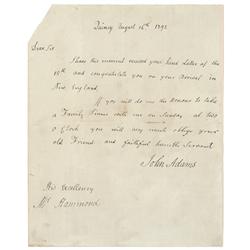 Quincy August 16th 1792
Dear Sir
I have this moment received your kind Letter of the
15th and congratulate you on your arrival in
New England.
If you will do me the Honour to take
a Family Dinner with me on Sunday, at two
O Clock you will very much oblige your
old Friend and faithful humble Servant
John Adams
His Excellency
Mr Hammond